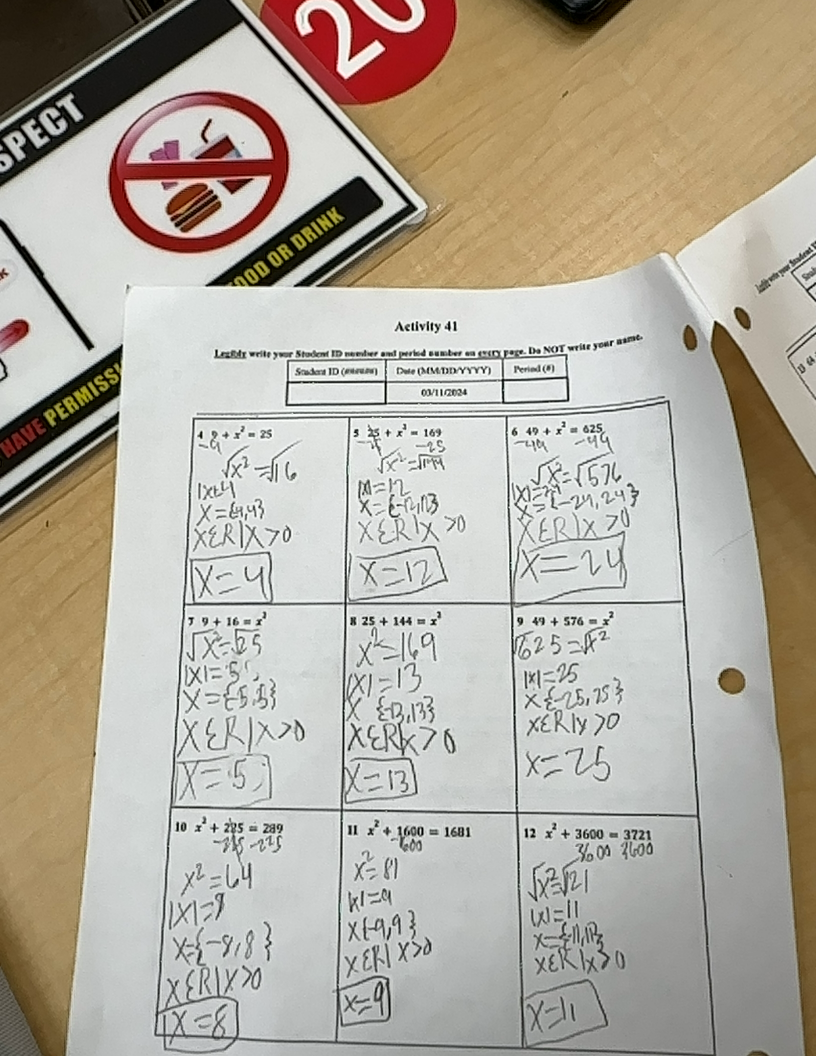 20
SPECT
FOOD OR DRINK
HAVE PERMISSI
Activity 41
Legibly write your Student ID number and period number on every page. Do NOT write your name.
Student ID (######) Date (MM/DD/YYYY) Period (#)
03/11/2024
4 9 + x² = 25
-9
√x² = √16
|x|=4
X = {-4,4}
XER|X>0
X=4
5 25 + x² = 169
-25 -25
√x² = √144
|x|=12
X = {-12,12}
XER|X>0
X=12
6 49 + x² = 625
-49 -49
√x² = √576
|X|=24
X = {-24,24}
XER|X>0
X=24
7 9 + 16 = x²
√x²=√25
|X|=5
X={-5,5}
XER|X>0
X=5
8 25 + 144 = x²
x²=169
|X|=13
X {-13,13}
XER|X>0
X=13
9 49 + 576 = x²
√625=√x²
|x|=25
X{-25,25}
XER|X>0
X=25
10 x² + 225 = 289
-225 -225
x²=64
|X|=8
X={-8,8}
XER|X>0
X=8
11 x² + 1600 = 1681
-1600
x²=81
|x|=9
X{-9,9}
XER|X>0
X=9
12 x² + 3600 = 3721
3600 3600
√x²=√121
|x|=11
X={-11,11}
XER|X>0
X=11